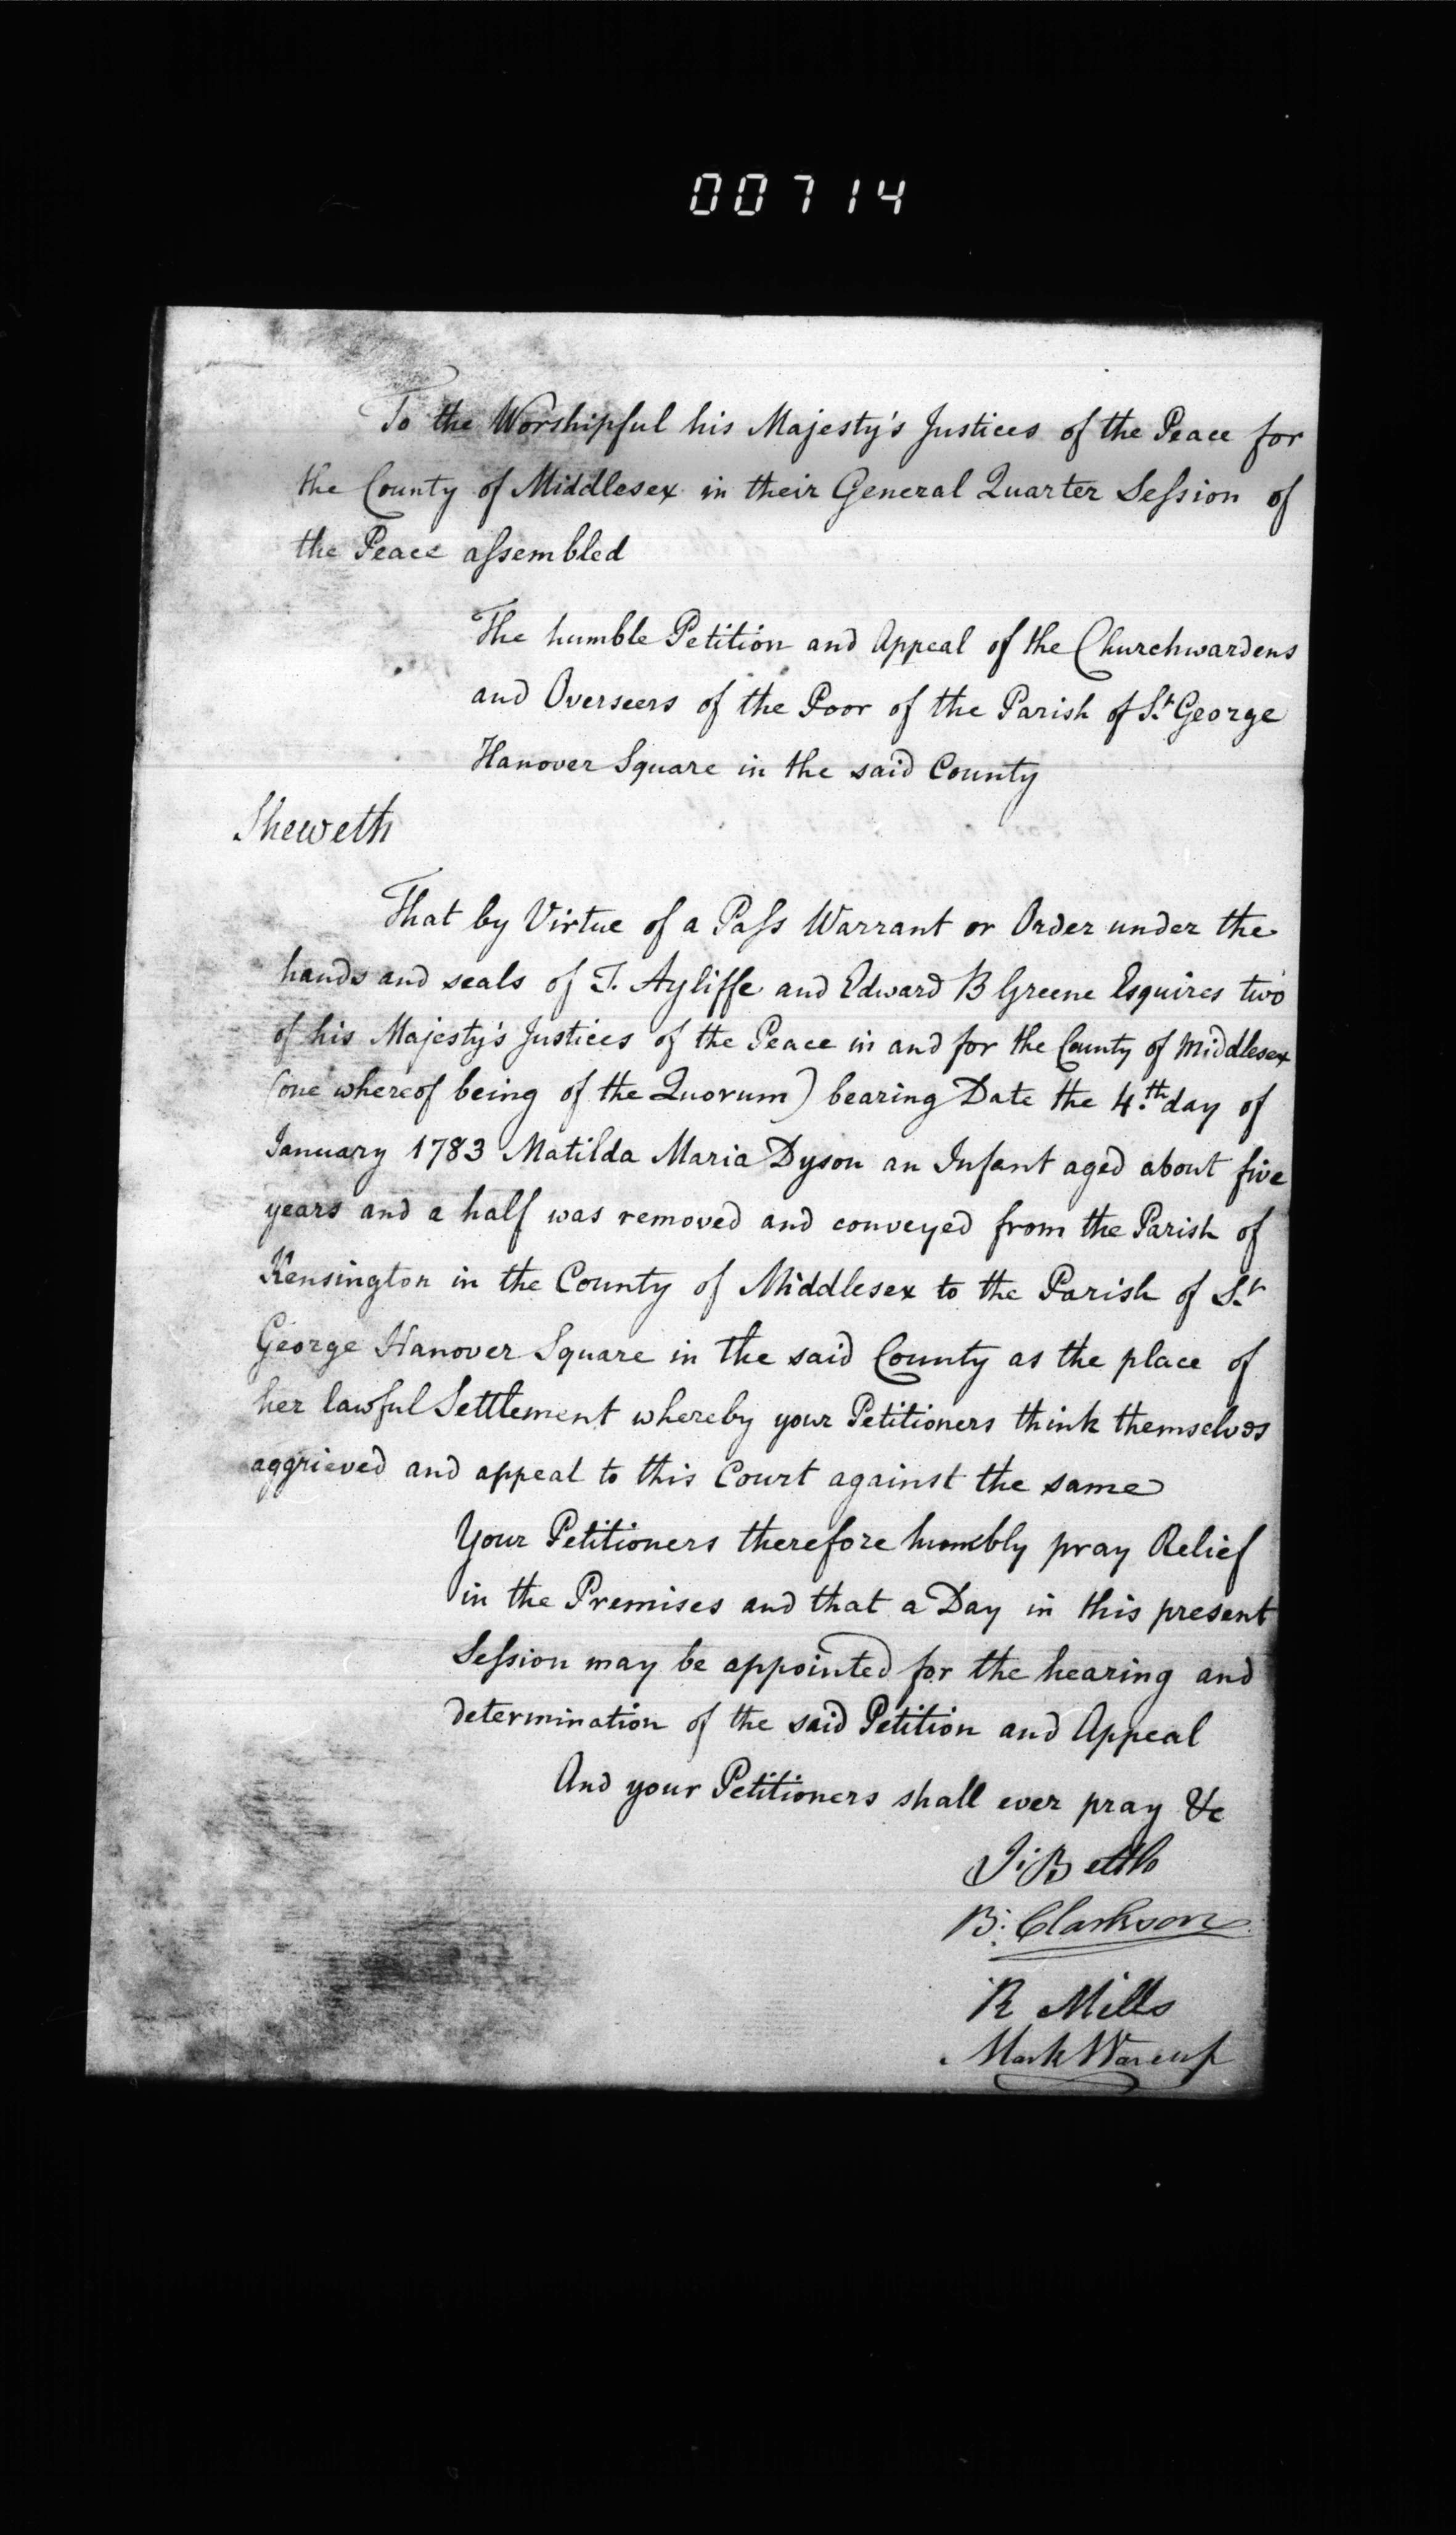 00714
To the Worshipful his Majesty's Justices of the Peace for
the County of Middlesex in their General Quarter Seſsion of
the Peace aſsembled
The humble Petition and Appeal of the Churchwardens
and Overseers of the Poor of the Parish of St. George
Hanover Square in the said County
Sheweth
That by Virtue of a Paſs Warrant or Order under the
hands and seals of T. Ayliffe and Edward B Greene Esquires two
of his Majesty's Justices of the Peace in and for the County of Middlesex
(one whereof being of the Quorum) bearing Date the 4.th day of
January 1783 Matilda Maria Dyson an Infant aged about five
years and a half was removed and conveyed from the Parish of
Kensington in the County of Middlesex to the Parish of St.
George Hanover Square in the said County as the place of
her lawful Settlement whereby your Petitioners think themselves
aggrieved and appeal to this Court against the same
Your Petitioners therefore humbly pray Relief
in the Premises and that a Day in this present
Seſsion may be appointed for the hearing and
determination of the said Petition and Appeal
And your Petitioners shall ever pray &c
B. Clarkson
R Mills
Mark